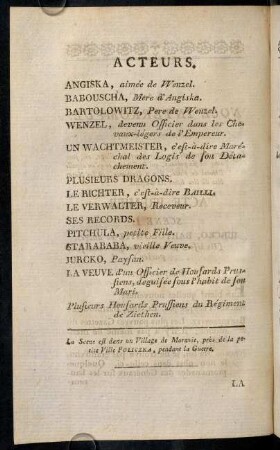 ACTEURS.
ANGISKA, aimée de Wenzel.
BABOUSCHA, Mere d'Angiska.
BARTOLOWITZ, Pere de Wenzel.
WENZEL, devenu Officier dans les Che-
vaux-légers de l'Empereur.
UN WACHTMEISTER, c'est-à-dire Maré-
chal des Logis de son Déta-
chement.
PLUSIEURS DRAGONS.
LE RICHTER, c'est-à-dire BAILLI.
LE VERWALTER, Receveur.
SES RECORDS.
PITCHULA, petite Fille.
STARABABA, vieille Veuve.
JURCKO, Paysan.
LA VEUVE d'un Officier de Housards Prus-
siens, déguisée sous l'habit de son
Mari.
Plusieurs Housards Prussiens du Régiment
de Ziethen.
La Scene est dans un Village de Moravie, près de la pe-
tite Ville POLICZKA, pendant la Guerre.
LA